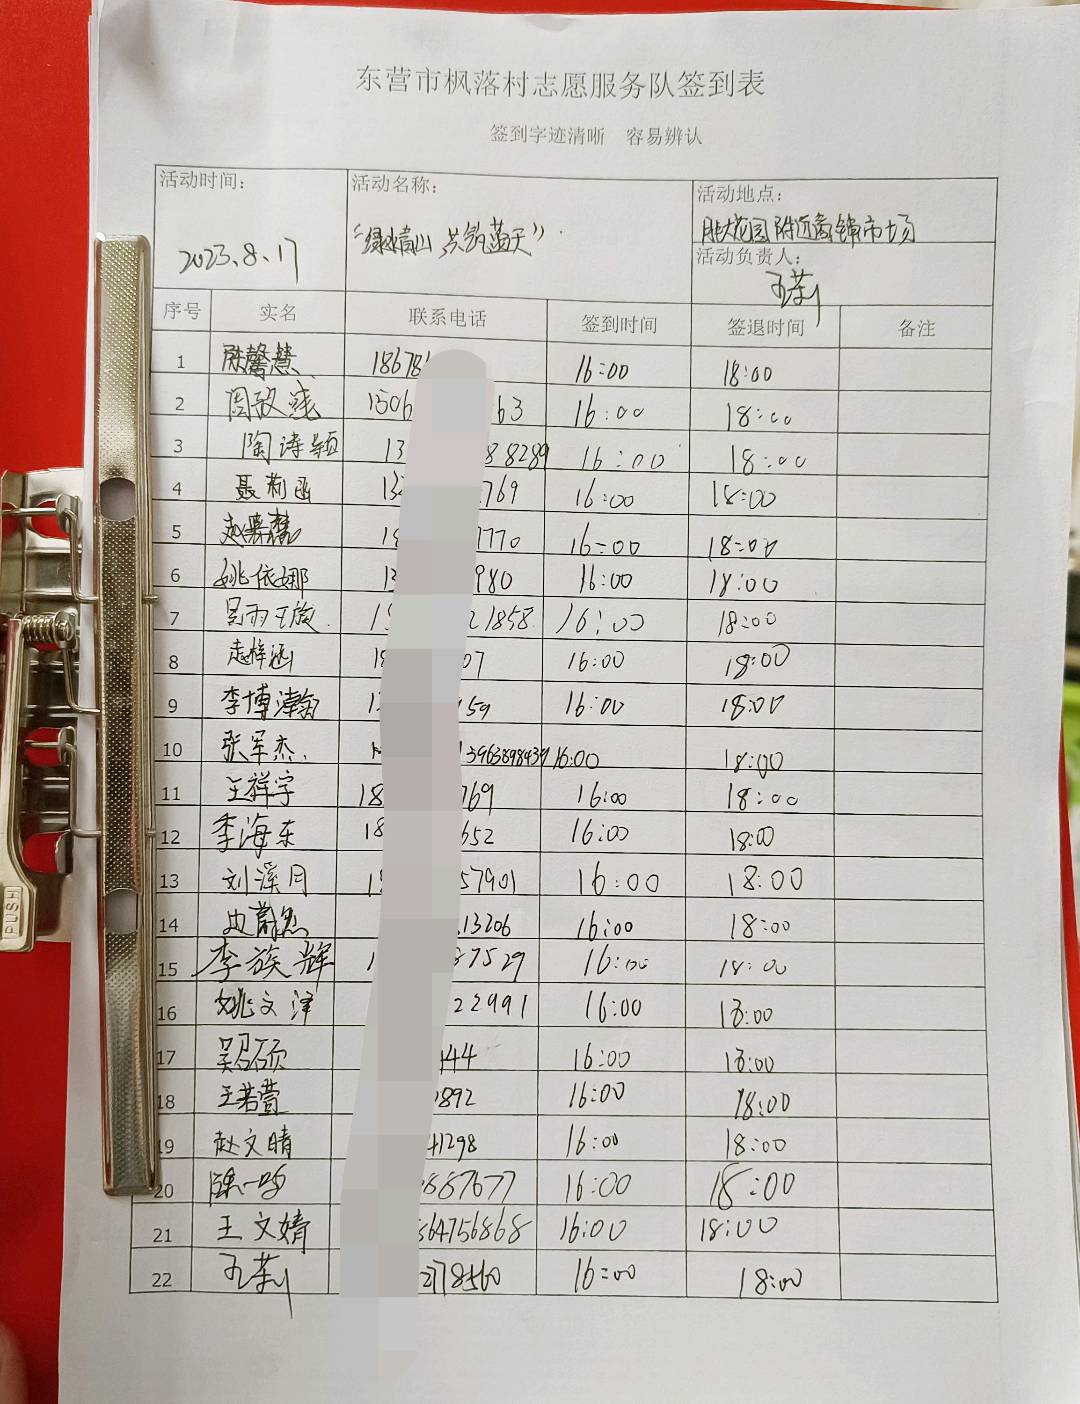 东营市枫落村志愿服务队签到表
签到字迹清晰 容易辨认
活动时间： 活动名称： 活动地点：
2023.8.17 花园附近 市场
活动负责人：
序号 实名 联系电话 签到时间 签退时间 备注
1 陈馨慧 18678 16:00 18:00
2 1506 63 16:00 18:00
3 陶诗颖 13 88289 16:00 18:00
4 聂莉函 13 769 16:00 18:00
5 18 770 16:00 18:00
6 姚依娜 13 980 16:00 18:00
7 21858 16:00 18:00
8 18 07 16:00 18:00
9 李博瀚 13 159 16:00 18:00
10 张军杰 13963898439 16:00 18:00
11 王祥宇 18 769 16:00 18:00
12 李海东 18 652 16:00 18:00
13 刘溪月 57901 16:00 18:00
14 13206 16:00 18:00
15 李族辉 7529 16:00 18:00
16 姚文泽 22991 16:00 18:00
17 44 16:00 18:00
18 王若萱 892 16:00 18:00
19 赵文晴 41298 16:00 18:00
20 陈一鸣 887677 16:00 18:00
21 王文婧 64756868 16:00 18:00
22 16:00 18:00
PUSH